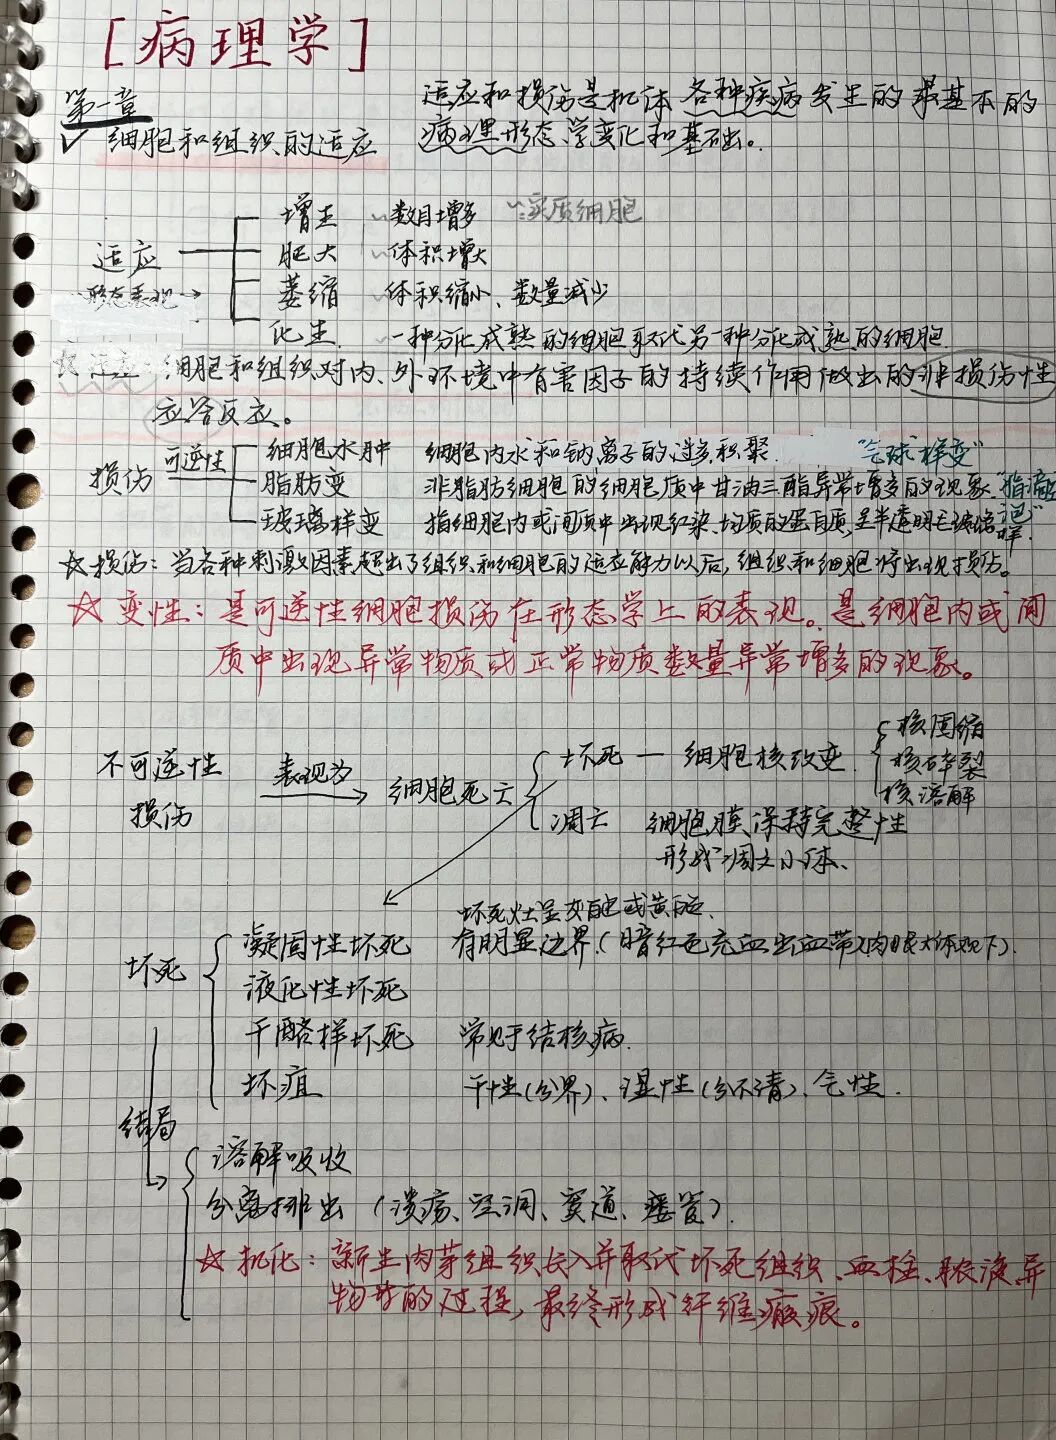 [病理学]
第一章
✓ 细胞和组织的适应
适应和损伤是机体各种疾病发生的最基本的
病理形态学变化和基础。
适应
形态表现→
增生 数目增多 实质细胞
肥大 体积增大
萎缩 体积缩小、数量减少
化生 一种分化成熟的细胞取代另一种分化成熟的细胞
☆适应 细胞和组织对内、外环境中有害因子的持续作用做出的非损伤性
应答反应。
损伤 可逆性
细胞水肿 细胞内水和钠离子的过多积聚 "气球样变"
脂肪变 非脂肪细胞的细胞质中甘油三酯异常增多的现象 "脂滴空泡"
玻璃样变 指细胞内或间质中出现红染、均质的蛋白质,呈半透明毛玻璃样
☆损伤:当各种刺激因素超出了组织和细胞的适应能力以后,组织和细胞将出现损伤。
☆ 变性:是可逆性细胞损伤在形态学上的表现。是细胞内或间
质中出现异常物质或正常物质数量异常增多的现象。
不可逆性
损伤
表现为
细胞死亡
坏死 — 细胞核改变
核固缩
核碎裂
核溶解
凋亡 细胞膜保持完整性
形成凋亡小体、
坏死
坏死灶呈灰白色或黄色.
凝固性坏死 有明显边界.(暗红色充血出血带)(肉眼大体观下).
液化性坏死
干酪样坏死 常见于结核病.
坏疽 干性(分界)、湿性(分不清)、气性.
结局
溶解吸收
分离排出 (溃疡、空洞、窦道、瘘管).
☆ 机化:新生肉芽组织长入并取代坏死组织、血栓、脓液、异
物等的过程,最终形成纤维瘢痕。